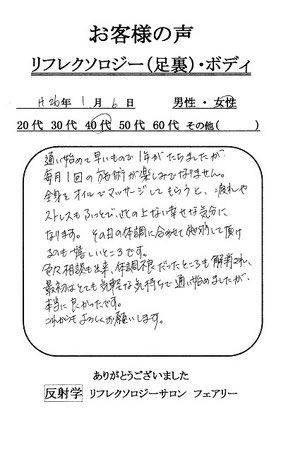 お客様の声
リフレクソロジー(足裏)・ボディ
H26年 1月 6日 男性・女性
20代 30代 40代 50代 60代 その他( )
通い始めて早いもので1年がたちましたが
毎月1回の施術が楽しみでなりません。
全身をオイルでマッサージしてもらうと、疲れや
ストレスもふっとび、この上ない幸せな気分に
なります。その日の体調に合わせて施術して頂け
るのも嬉しいところです。
色々相談も出来、体調不良だったところも解消され、
最初はとても気軽な気持ちで通い始めましたが、
本当に良かったです。
これからもよろしくお願いします。
ありがとうございました
反射学 リフレクソロジーサロン フェアリー